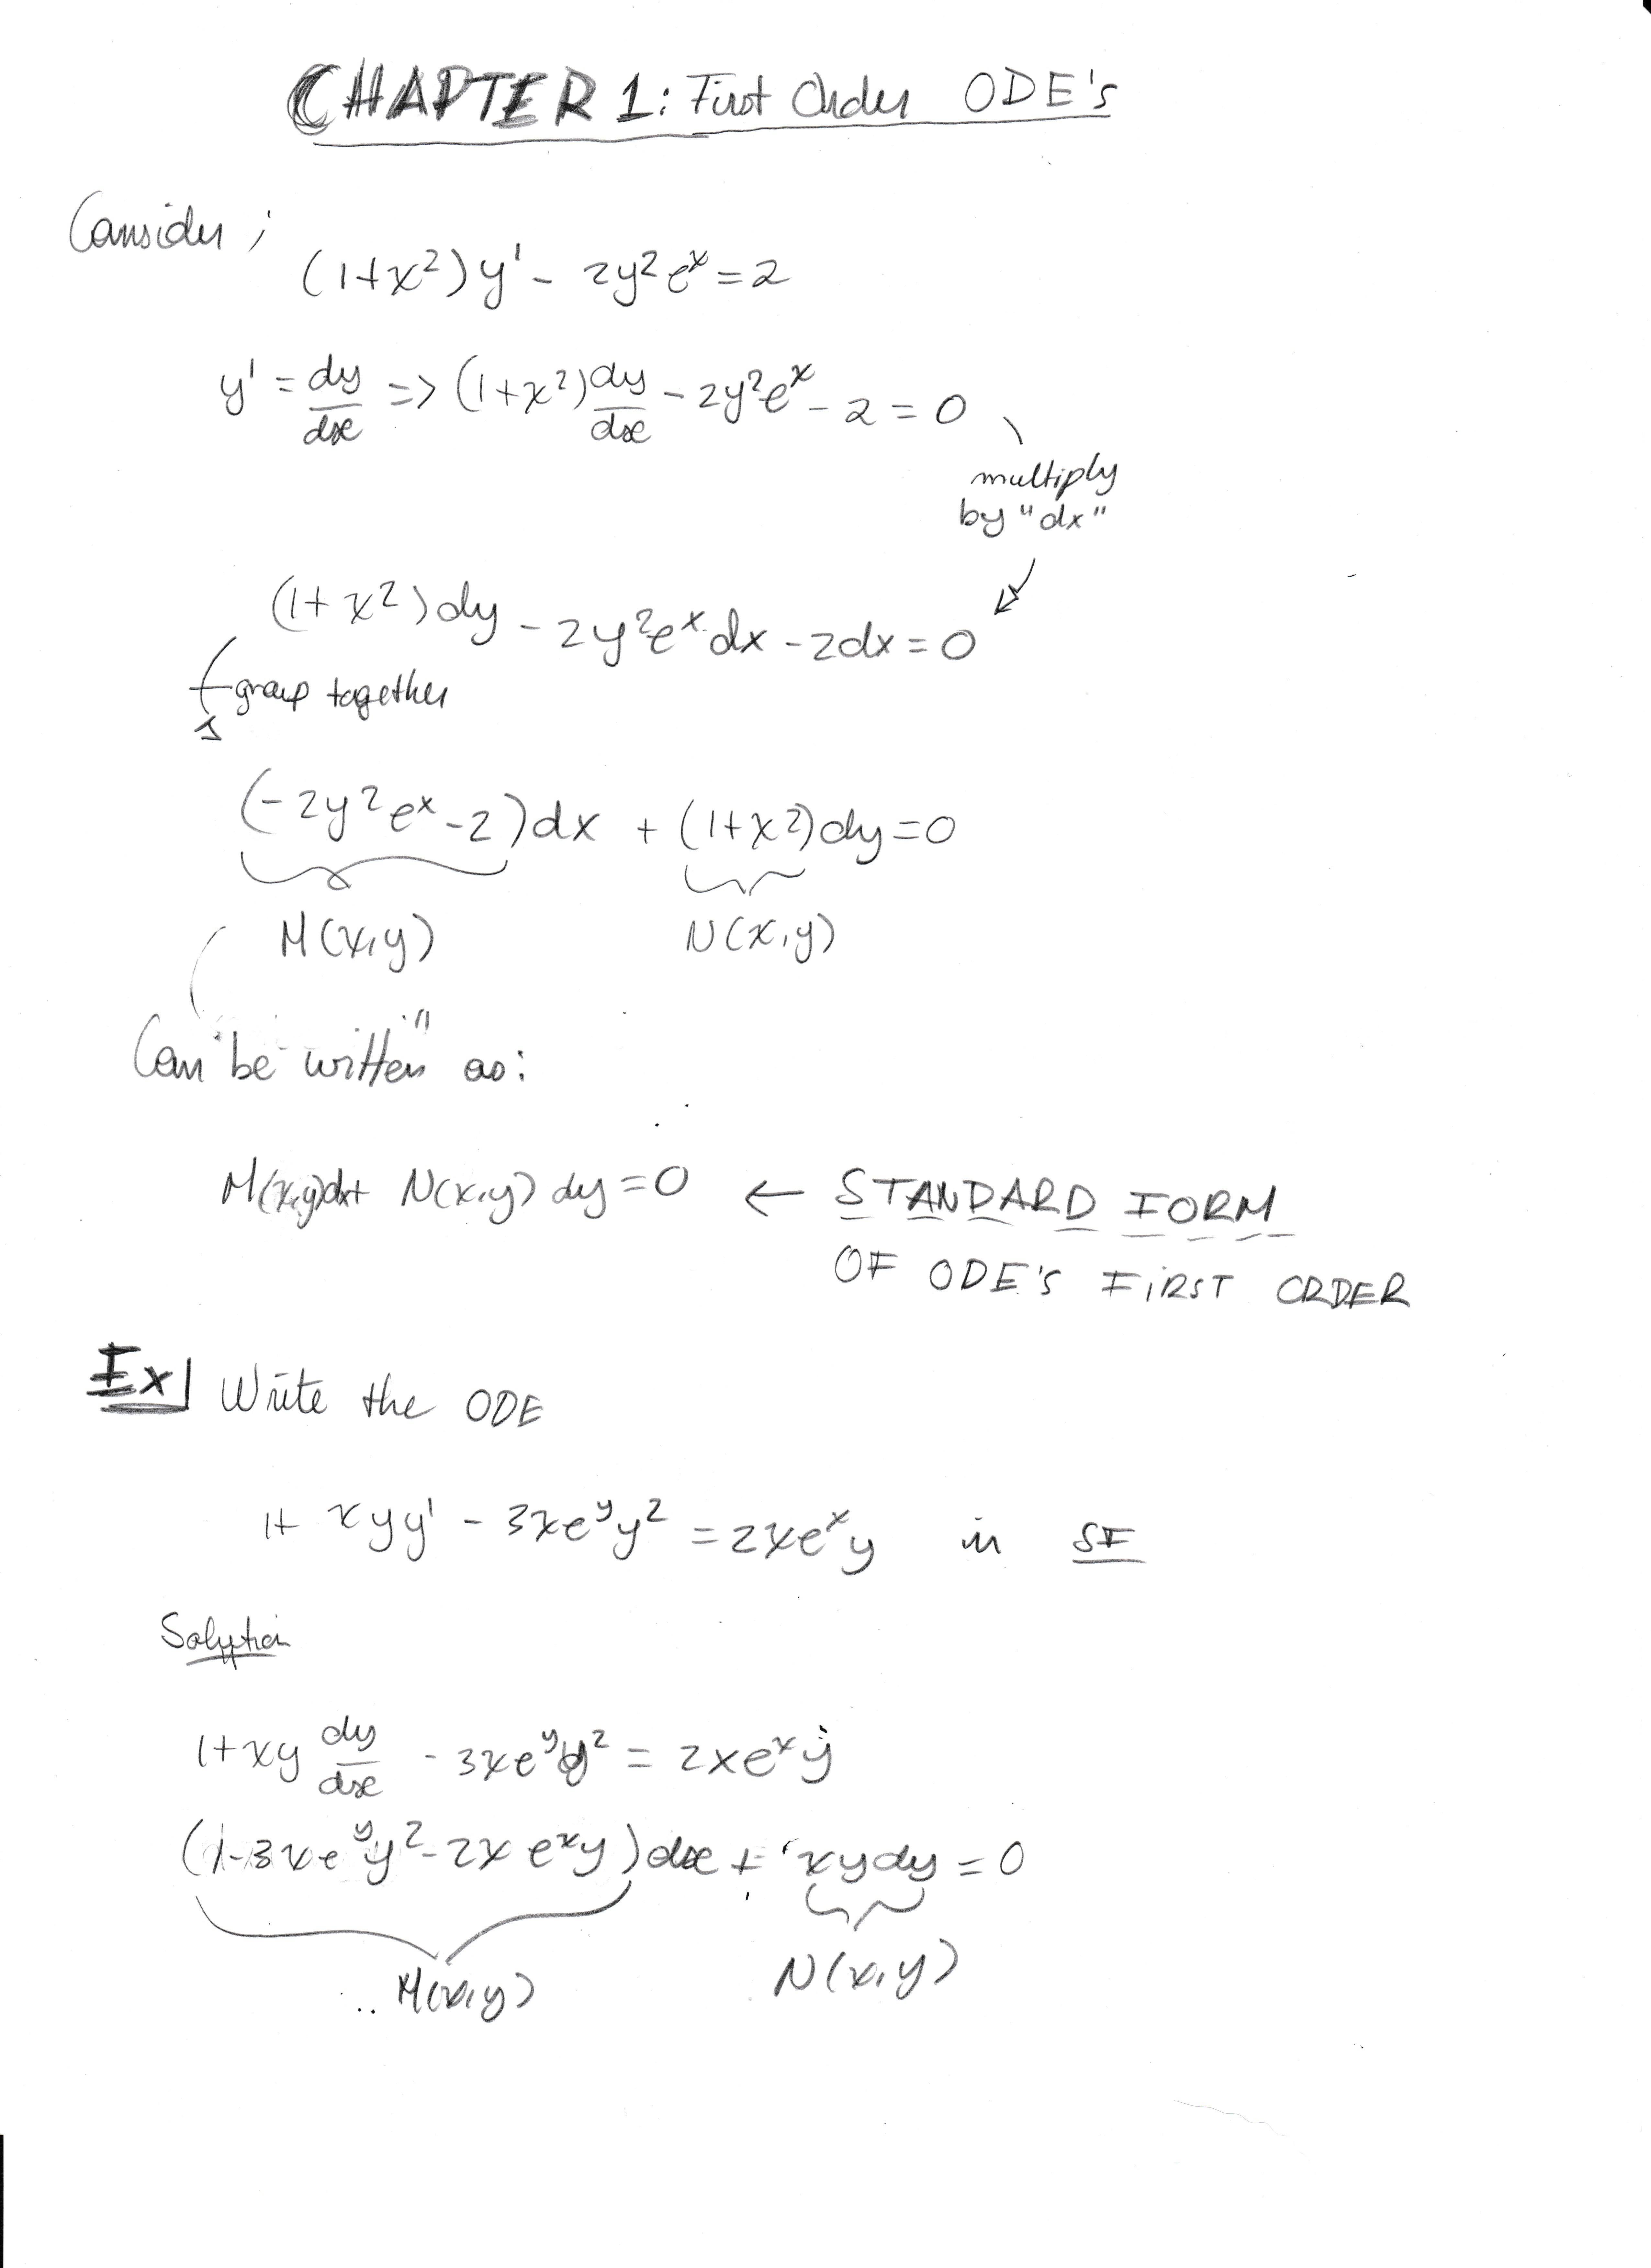 CHAPTER 1: First Order ODE's
Consider;
(1+x²)y' - 2y²eˣ = 2
y' = dy/dx => (1+x²)dy/dx - 2y²eˣ - 2 = 0
multiply
by "dx"
(1+x²)dy - 2y²eˣdx - 2dx = 0
group together
(-2y²eˣ-2)dx + (1+x²)dy=0
M(x,y) N(x,y)
Can be written as:
M(x,y)dx+ N(x,y) dy=0 ← STANDARD FORM
OF ODE'S FiRST ORDER
Ex| Write the ODE
1+ xyy' - 3xeʸy² = 2xeˣy in SF
Solution
1+xy dy/dx - 3xeʸy² = 2xeˣy
(1-3xeʸy²-2xeˣy)dx + xydy = 0
M(x,y) N(x,y)